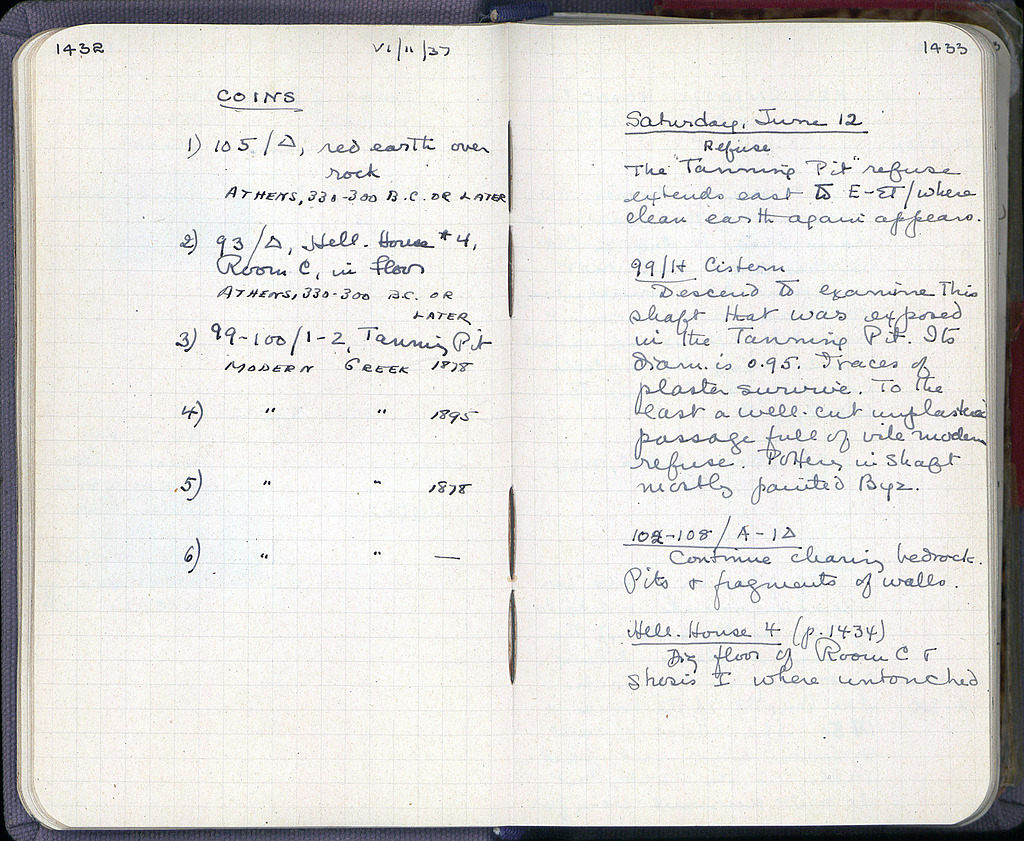 1432
VI/11/37
COINS
1) 105/Δ, red earth over
rock
ATHENS, 330-300 B.C. OR LATER
2) 93/Δ, Hell. House #4,
Room C, in floor
ATHENS, 330-300 B.C. OR
LATER
3) 99-100/1-2, Tanning Pit
MODERN GREEK 1878
4) " " 1895
5) " " 1878
6) " " —
1433
Saturday, June 12
Refuse
The "Tanning Pit" refuse
extends east to E-ET/where
clean earth again appears.
99/ Cistern
Descend to examine this
shaft that was exposed
in the Tanning Pit. Its
diam. is 0.95. Traces of
plaster survive. To the
east a well-cut unplastered
passage full of vile modern
refuse. Pottery in shaft
mostly painted Byz.
102-108/A-1Δ
Continue clearing bedrock.
Pits & fragments of walls.
Hell. House 4 (p. 1434)
Dig floor of Room C &
I where untouched